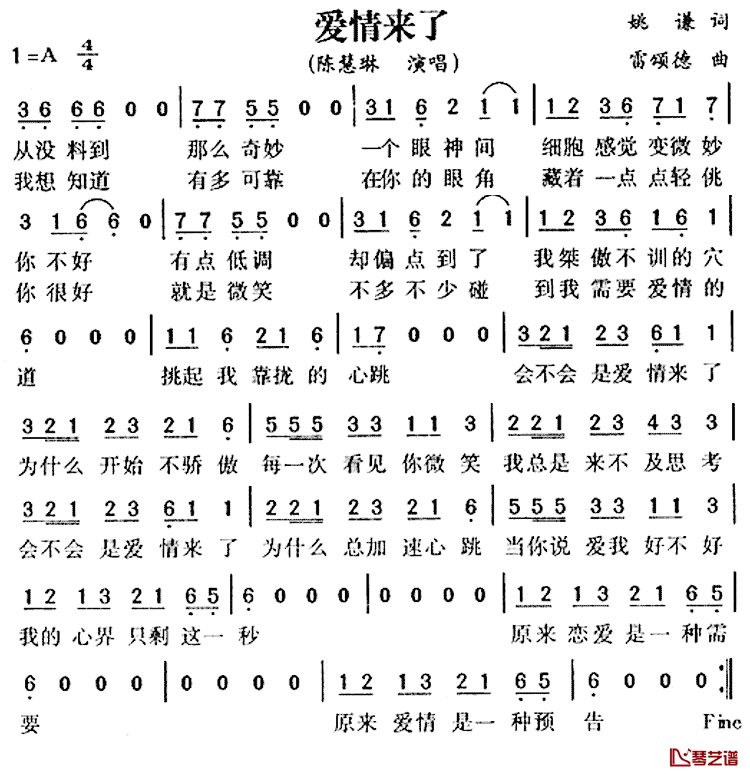 爱情来了
姚谦 词
1=A 4/4
(陈慧琳 演唱)
雷颂德 曲
3 6 6 6 0 0 | 7 7 5 5 0 0 | 3 1 6 2 1 1 | 1 2 3 6 7 1 7 |
从没料到 那么奇妙 一个眼神间 细胞感觉变微妙
我想知道 有多可靠 在你的眼角 藏着一点点轻佻
3 1 6 6 0 | 7 7 5 5 0 0 | 3 1 6 2 1 1 | 1 2 3 6 1 6 1 |
你不好 有点低调 却偏点到了 我桀傲不训的穴
你很好 就是微笑 不多不少碰 到我需要爱情的
6 0 0 0 | 1 1 6 2 1 6 | 1 7 0 0 0 | 3 2 1 2 3 6 1 1 |
道 挑起我靠拢的心跳 会不会是爱情来了
3 2 1 2 3 2 1 6 | 5 5 5 3 3 1 1 3 | 2 2 1 2 3 4 3 3 |
为什么开始不骄傲 每一次看见你微笑 我总是来不及思考
3 2 1 2 3 6 1 1 | 2 2 1 2 3 2 1 6 | 5 5 5 3 3 1 1 3 |
会不会是爱情来了 为什么总加速心跳 当你说爱我好不好
1 2 1 3 2 1 6 5 | 6 0 0 0 | 0 0 0 0 | 1 2 1 3 2 1 6 5 |
我的心界只剩这一秒 原来恋爱是一种需
6 0 0 0 | 0 0 0 0 | 1 2 1 3 2 1 6 5 | 6 0 0 0 :||
要 原来爱情是一种预告 Fine
琴艺谱